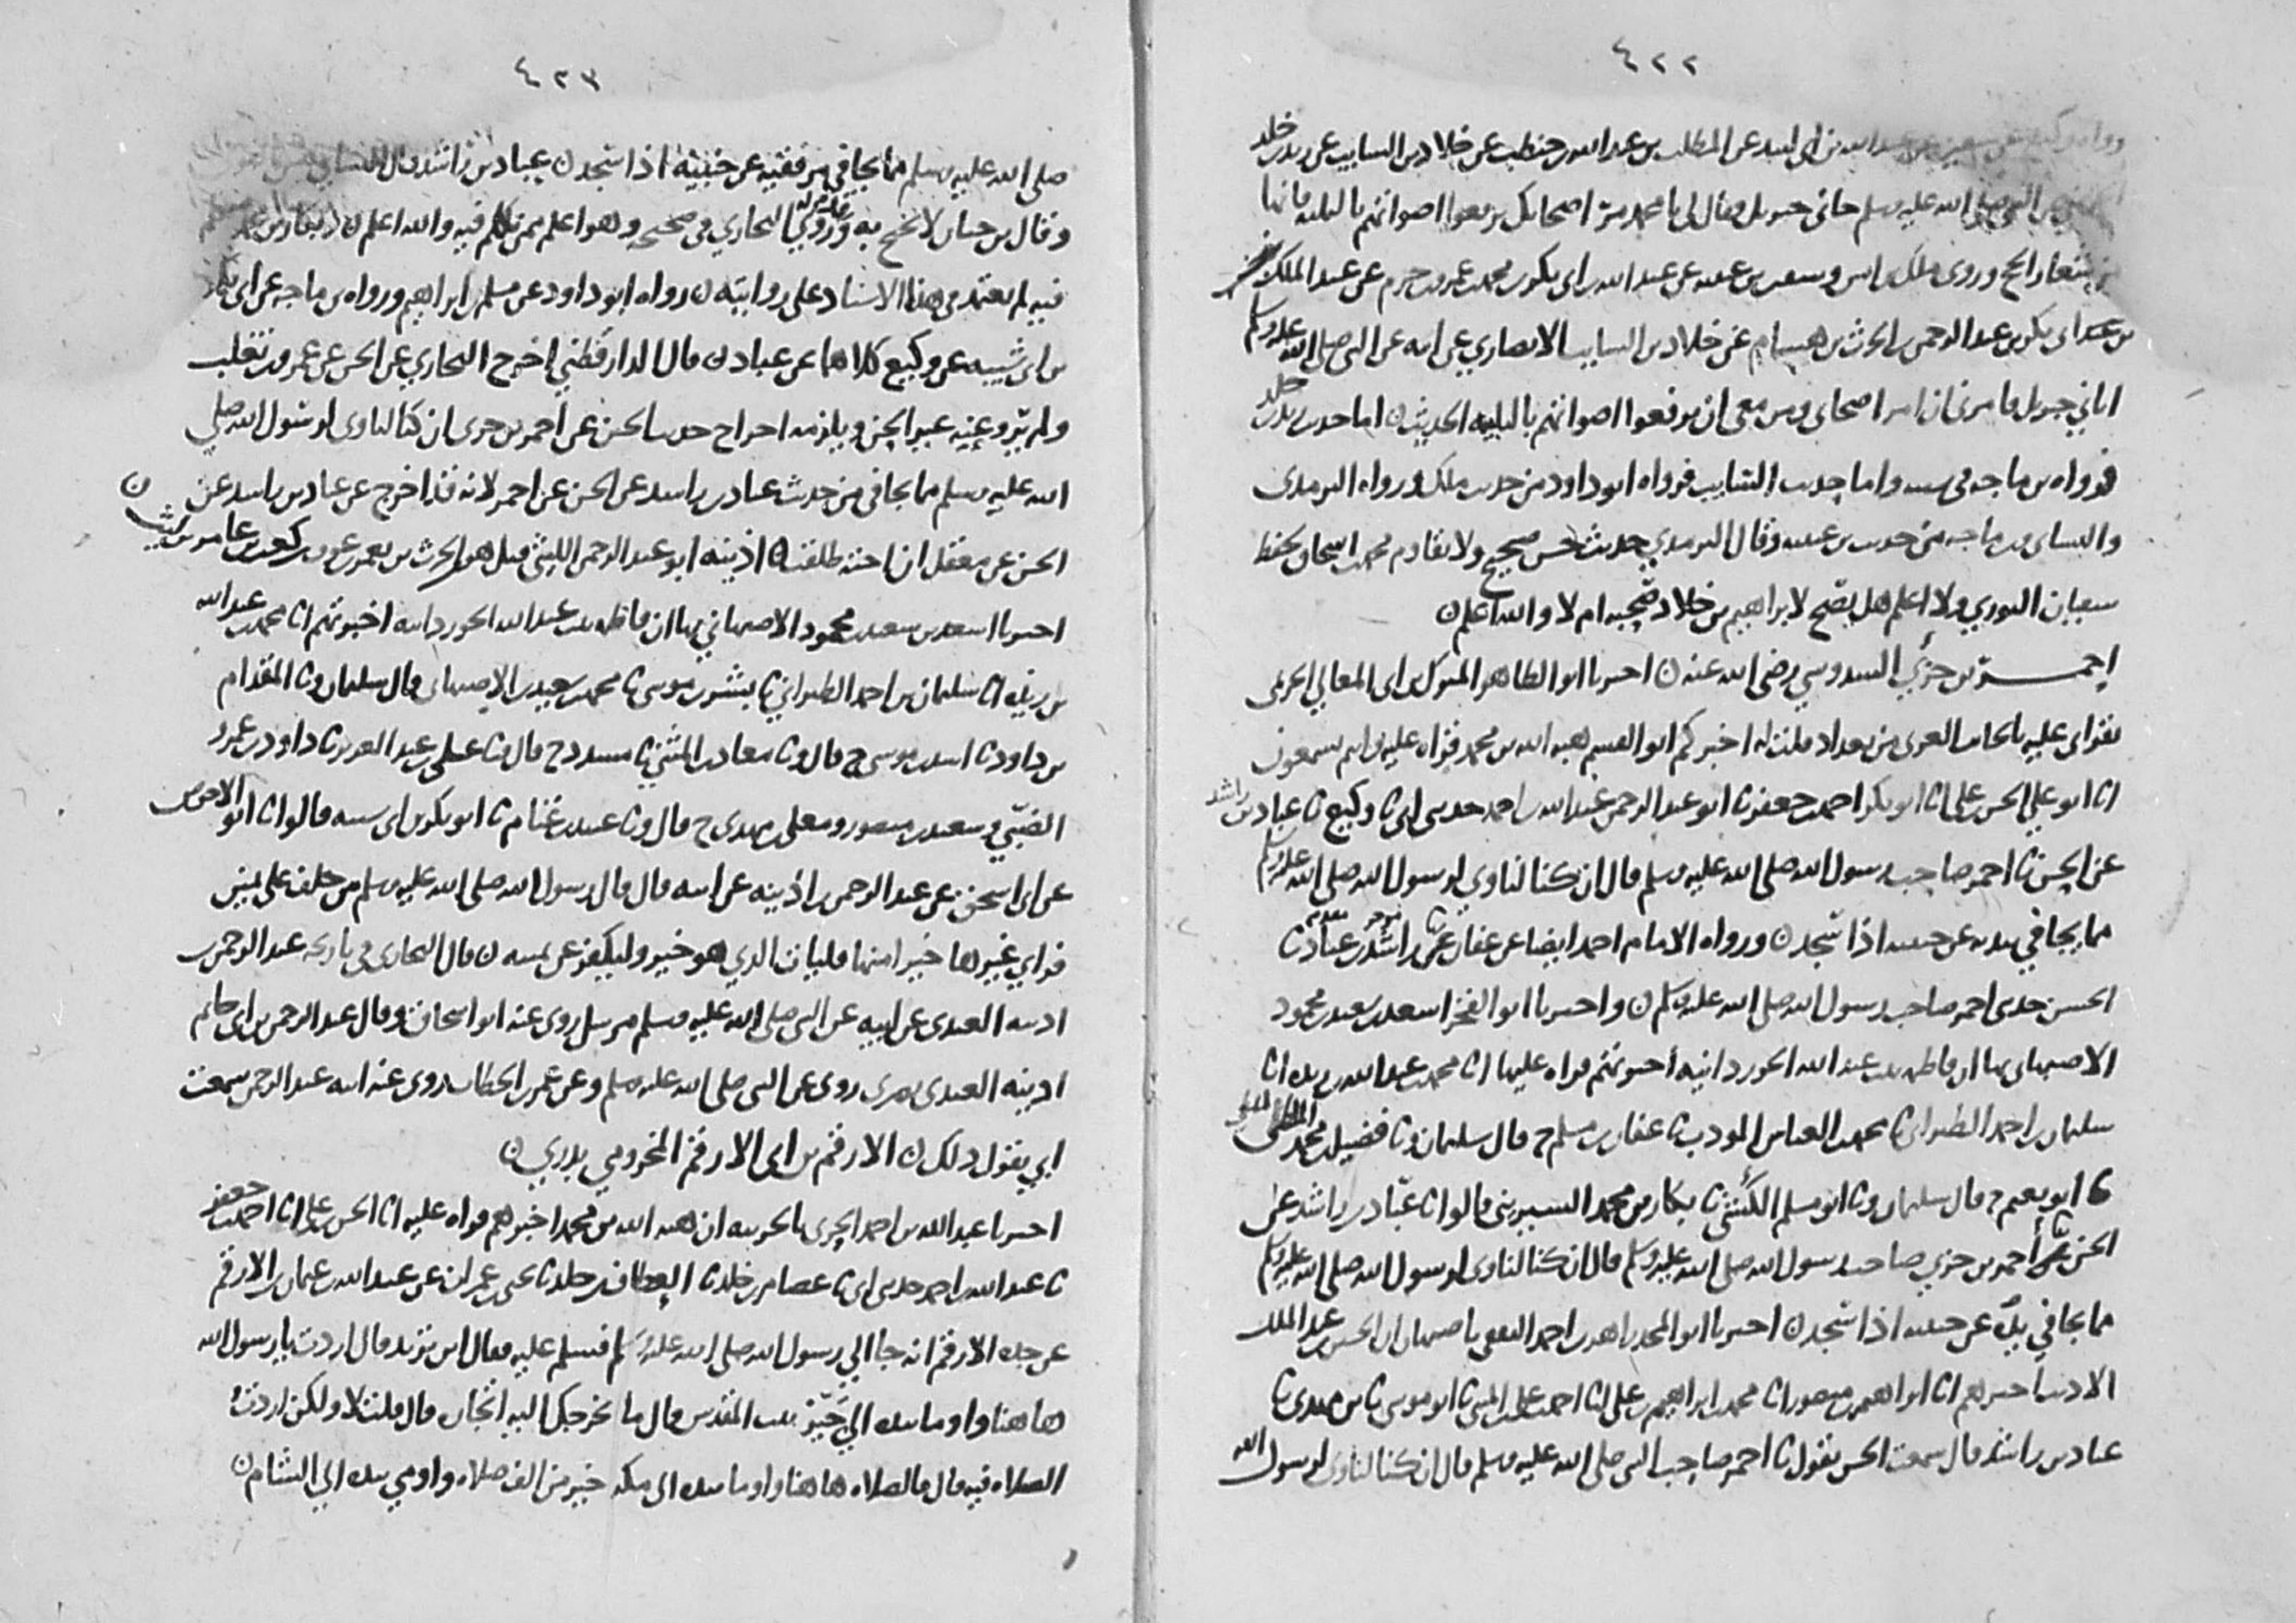 ٤٢٢
عن عبد الله بن ابي لبيد عن المطلب بن عبد الله بن حنطب عن خلاد بن السايب عن زيد بن خلد
النبي صلى الله عليه وسلم جاني جبريل فقال لي يا محمد مر اصحابك يرفعوا اصواتهم بالتلبيه فانها
من شعار الحج وروى ملك بن انس وسفين بن عيينه عن عبد الله بن ابي بكر بن محمد بن عمرو بن حزم عن عبد الملك
بن ابي بكر بن عبد الرحمن بن الحرث بن هشام عن خلاد بن السايب الانصاري عن ابيه عن النبي صلى الله عليه وسلم
اتاني جبريل فامرني ان امر اصحابي ومن معي ان يرفعوا اصواتهم بالتلبيه الحديث ن اما حديث زيد بن خلد
فرواه بن ماجه في سننه واما حديث السايب فرواه ابو داود من حديث ملك ورواه الترمذي
والنسائي وبن ماجه من حديث بن عيينه وقال الترمذي حديث حسن صحيح ولا يقاوم محمد بن اسحاق بحفظ
سفيان الثوري ولا اعلم هل يصح لابراهيم بن خلاد صحبه ام لا والله اعلم ن
احمر بن جزي السدوسي رضي الله عنه ن اخبرنا ابو الطاهر المبارك بن ابي المعالي الحريمي
بقراتي عليه بالجانب الغربي من بغداد قلت له اخبركم ابو القسم هبه الله بن محمد قراه عليه وانتم تسمعون
انا ابو علي الحسن بن علي انا ابو بكر احمد بن جعفر نا ابو عبد الرحمن عبد الله بن احمد حدثني ابي نا وكيع نا عباد بن راشد
عن الحسن نا احمر صاحب رسول الله صلى الله عليه وسلم قال ان كنا لناوي لرسول الله صلى الله عليه وسلم
مما يجافي بيديه عن جنبيه اذا سجد ن ورواه الامام احمد ايضا عن عفان عن راشد بن عباد نا
الحسن حدثني احمر صاحب رسول الله صلى الله عليه وسلم ن واخبرنا ابو الفخر اسعد بن سعيد بن محمود
الاصبهاني بها ان فاطمه بنت عبد الله الجوزدانيه اخبرتهم قراه عليها انا محمد بن عبد الله بن ريذه انا
سليمان بن احمد الطبراني نا محمد بن العباس المودب نا عفان بن مسلم ح قال سليمان ونا فضيل بن محمد الملطي
نا ابو نعيم ح قال سليمان ونا ابو مسلم الكشي نا بكار بن محمد السيريني قالوا نا عباد بن راشد عن
الحسن احمر بن جزي صاحب رسول الله صلى الله عليه وسلم قال ان كنا لناوي لرسول الله صلى الله عليه وسلم
مما يجافي يديه عن جنبيه اذا سجد ن اخبرنا ابو المجد زاهر بن احمد الثقفي باصبهان ان الحسين بن عبد الملك
الاديب اخبرهم انا ابراهيم بن منصور انا محمد بن ابراهيم بن علي انا احمد بن علي بن المثنى نا ابو موسى نا بن مهدي نا
عباد بن راشد قال سمعت الحسن يقول نا احمر صاحب النبي صلى الله عليه وسلم قال ان كنا لناوي لرسول الله
٤٢٣
صلى الله عليه وسلم مما يجافي مرفقيه عن جنبيه اذا سجد ن عباد بن راشد قال النسائي
وقال بن حبان لا يحتج به وقد روى له البخاري في صحيحه وهو اعلم بمن تكلم فيه والله اعلم ن
فيه لم يعتمد في هذا الاسناد على روايته ن رواه ابو داود عن مسلم بن ابراهيم ورواه بن ماجه عن ابي بكر
بن ابي شيبه عن وكيع كلاهما عن عباد ن قال الدارقطني اخرج البخاري عن الحسن عن عمرو بن تغلب
ولم يرو عنه غير الحسن ويلزمه اخراج حديث الحسن عن احمر بن جزي ان كنا لناوي لرسول الله صلى
الله عليه وسلم مما يجافي من حديث عباد بن راشد عن الحسن عن احمر لانه قد اخرج عن عباد بن راشد عن
الحسن عن معقل ان اخته طلقت ن اذينه ابو عبد الرحمن الليثي قيل هو الحرث بن يعمر بن عوف بن كعب بن عامر بن ليث ن
اخبرنا اسعد بن سعيد بن محمود الاصبهاني بها ان فاطمه بنت عبد الله الجوزدانيه اخبرتهم انا محمد بن عبد الله
بن ريذه انا سليمان بن احمد الطبراني نا بشر بن موسى نا محمد بن سعيد بن الاصبهاني قال سليمان ونا المقدام
بن داود نا اسد بن موسى ح قال ونا معاذ بن المثنى نا مسدد ح قال ونا علي بن عبد العزيز نا داود بن عمرو
الضبي وسعيد بن منصور ومعلى بن مهدي ح قال ونا عبيد بن غنام نا ابو بكر بن ابي شيبه قالوا نا ابو الاحوص
عن ابي اسحق عن عبد الرحمن بن اذينه عن ابيه قال قال رسول الله صلى الله عليه وسلم من حلف على يمين
فراي غيرها خيرا منها فليات الذي هو خير وليكفر عن يمينه ن قال البخاري في تاريخه عبد الرحمن بن
اذينه العبدي عن ابيه عن النبي صلى الله عليه وسلم مرسل روى عنه ابو اسحاق وقال عبد الرحمن بن ابي حاتم
اذينه العبدي بصري روى عن النبي صلى الله عليه وسلم وعن عمر بن الخطاب روى عنه ابنه عبد الرحمن سمعت
ابي يقول ذلك ن الارقم بن ابي الارقم المخزومي بدري ن
اخبرنا عبد الله بن احمد الحربي بالحربيه ان هبه الله بن محمد اخبرهم قراه عليه انا الحسن بن علي انا احمد بن جعفر
نا عبد الله بن احمد حدثني ابي نا عصام بن خلد نا العطاف بن خلد نا يحيى بن عمران عن عبد الله بن عثمان بن الارقم
عن جده الارقم انه جا الى رسول الله صلى الله عليه وسلم فسلم عليه فقال اين تريد قال اردت يا رسول الله
هاهنا واوما بيده الى حيز بيت المقدس قال ما يخرجك اليه اتجاره قال قلت لا ولكن اردت
الصلاه فيه قال فالصلاه هاهنا واوما بيده الى مكه خير من الف صلاه واومى بيده الى الشام ن